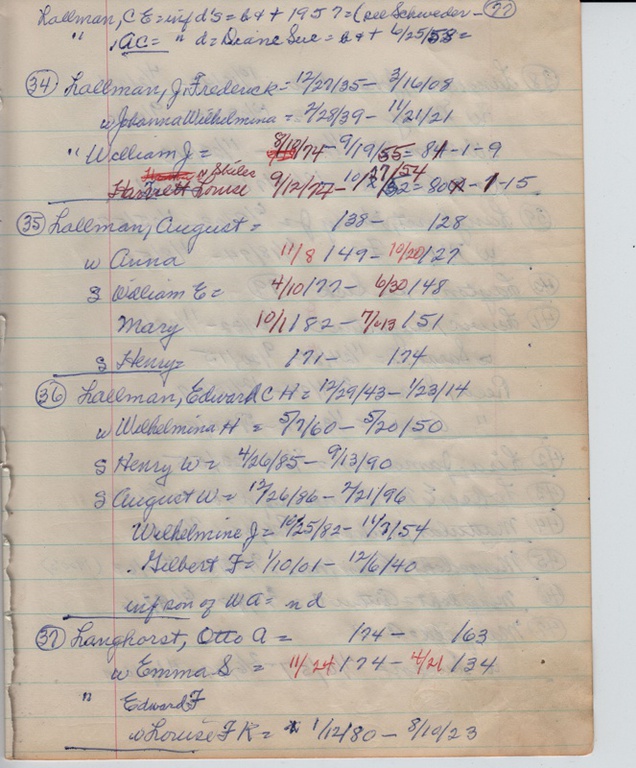 Lallman, C E = inf d's = b & + 1957 = (see Schweder - 77)
" , AC = " d = Diane Sue = b & + 6/25/58 =
34 Lallman, J. Frederick = 12/27/35 - 3/16/08
w Johanna Wilhelmina = 2/28/39 - 11/21/21
" William J = /74 - 9/19/55 = 81 - 1 - 9
w Shiler
Harriett Louise 9/12/72 - 10/27/54 = 80 - 1 - 15
35 Lallman, August = /38 - /28
w Anna 11/8/49 - 10/20/27
S William E = 4/10/77 - 6/30/48
Mary 10/1/82 - 7/13/51
S Henry = /71 - /74
36 Lallman, Edward C H = 12/29/43 - 1/23/14
w Wilhelmina H = 5/7/60 - 5/20/50
S Henry W = 4/26/85 - 9/13/90
S August W = 12/26/86 - 2/21/96
Wilhelmine J = 10/25/82 - 11/3/54
Gilbert F = 1/10/01 - 12/6/40
inf son of W A = nd
37 Langhorst, Otto A = /74 - /63
w Emma S = 11/24/74 - 4/21/34
" Edward F
w Louise F K = 1/12/80 - 8/10/23